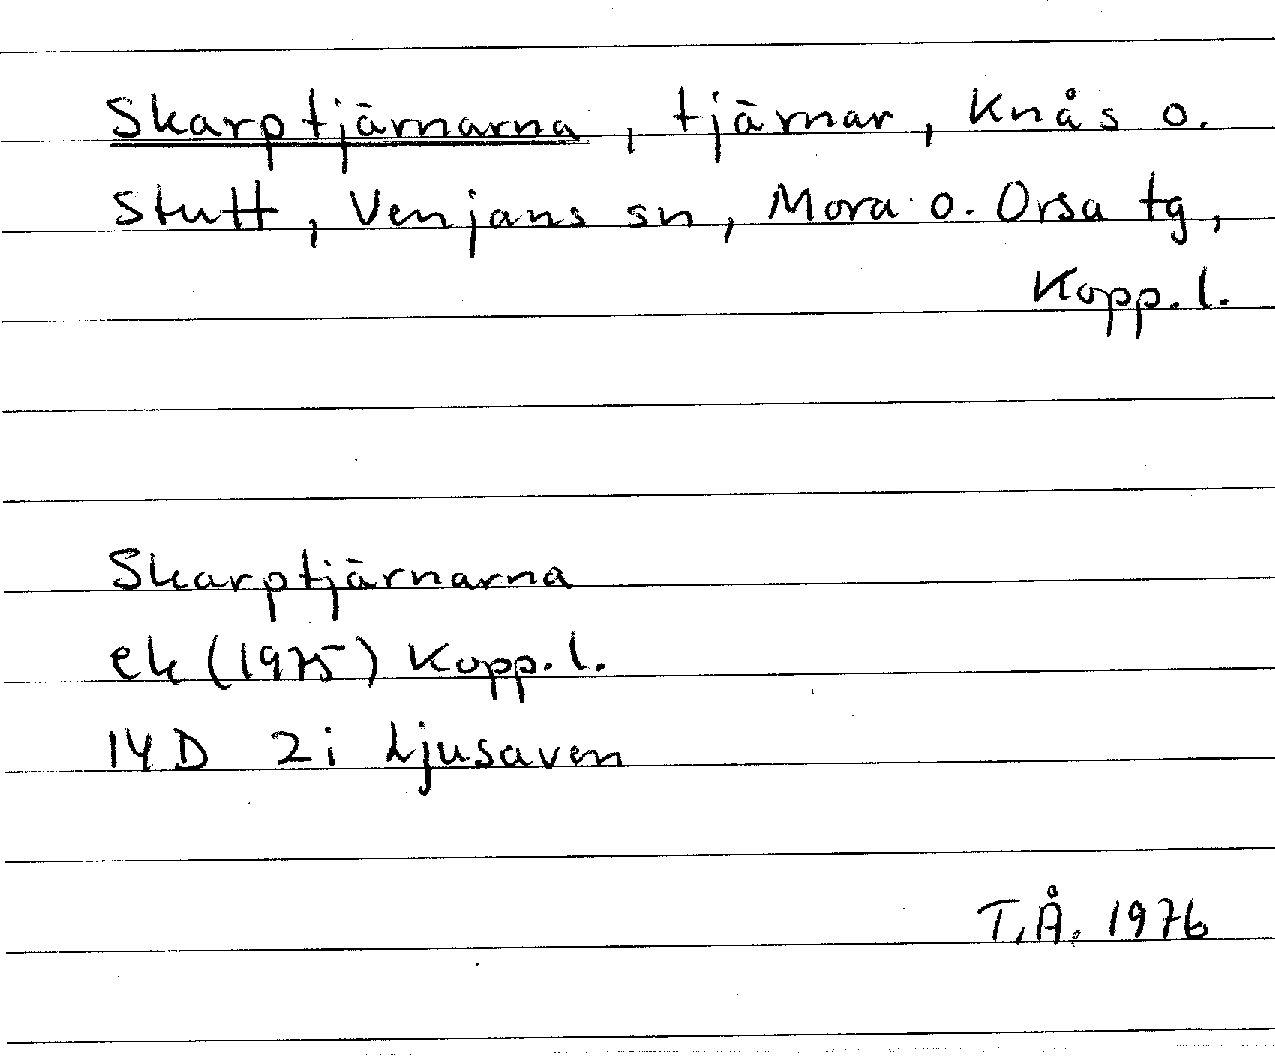 Skarptjärnarna, tjärnar, Knås o.
Stutt, Venjans sn, Mora o. Orsa tg,
Kopp. l.
Skarptjärnarna
ek (1975) Kopp. l.
14 D 2i Ljusaven
T.Å. 1976